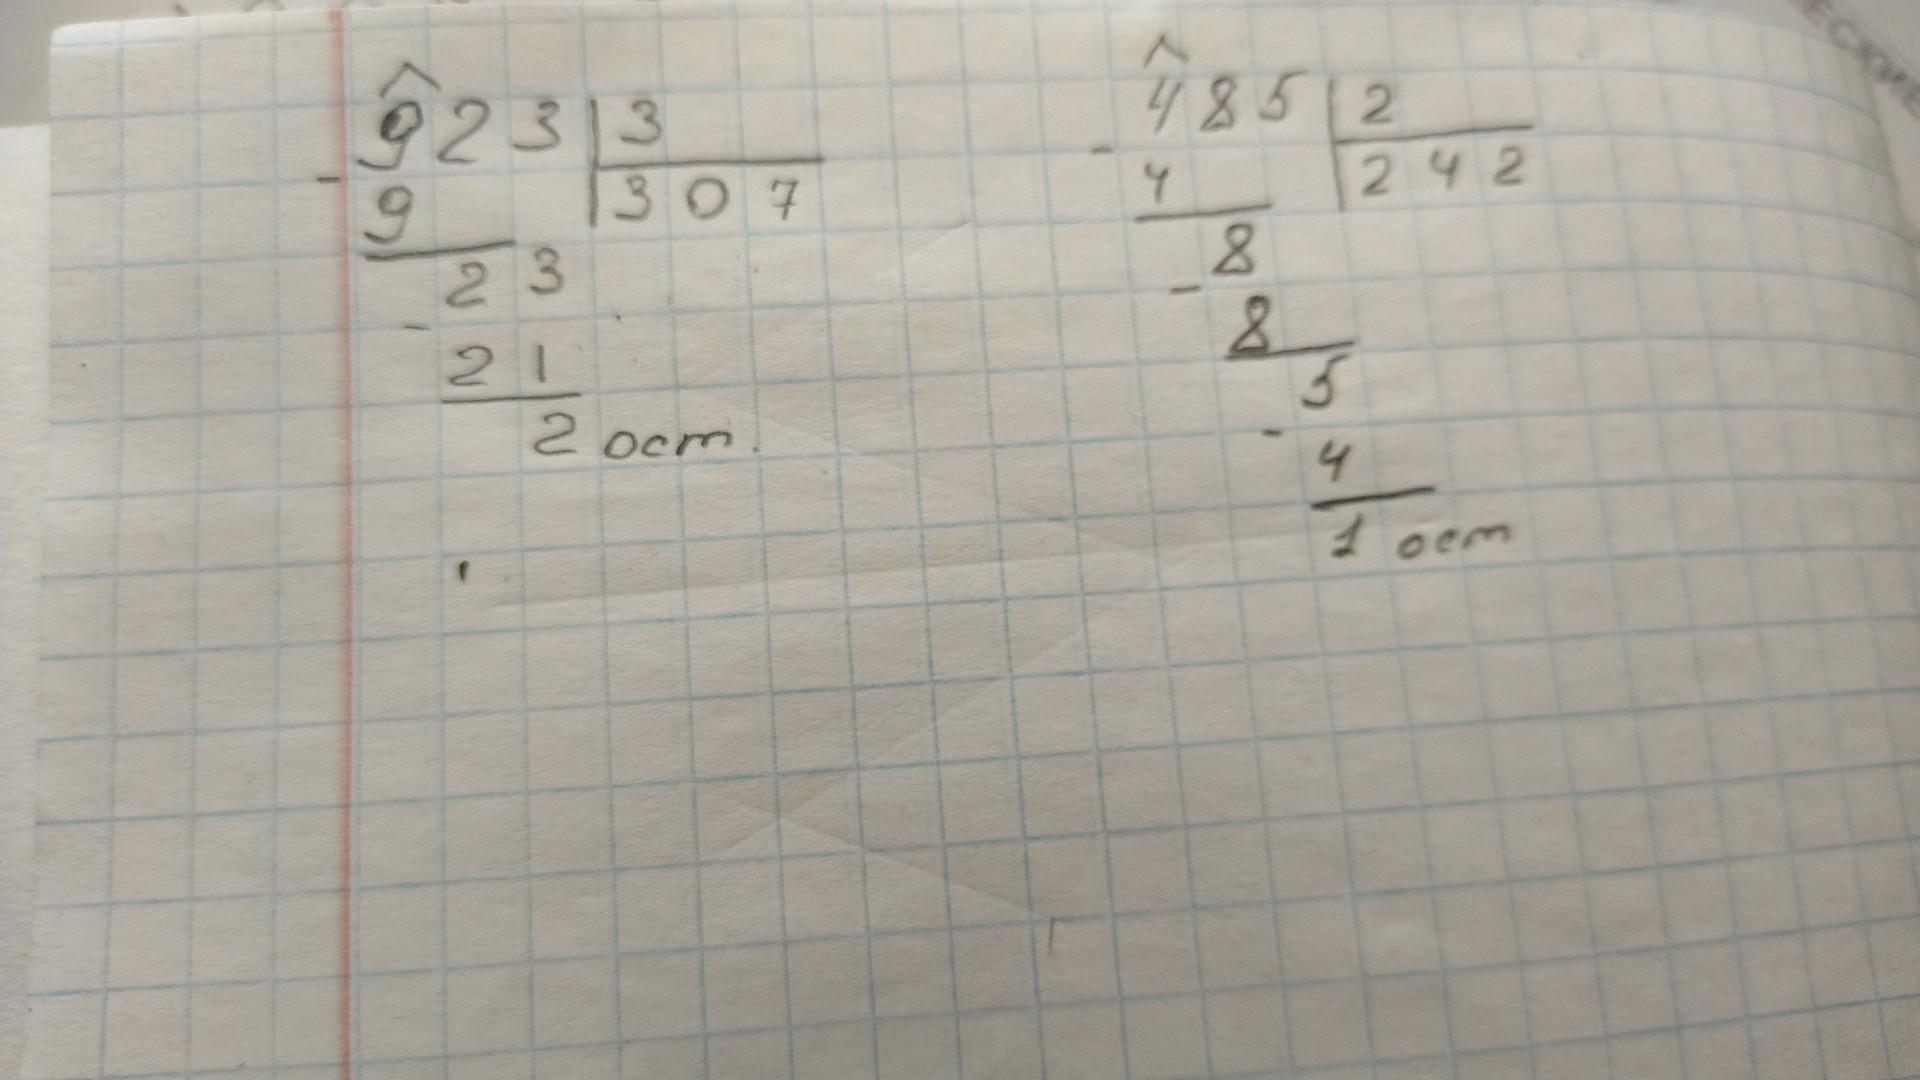 923 | 3
- 9 | 307
23
- 21
2 ост.
485 | 2
- 4 | 242
8
- 8
5
- 4
1 ост